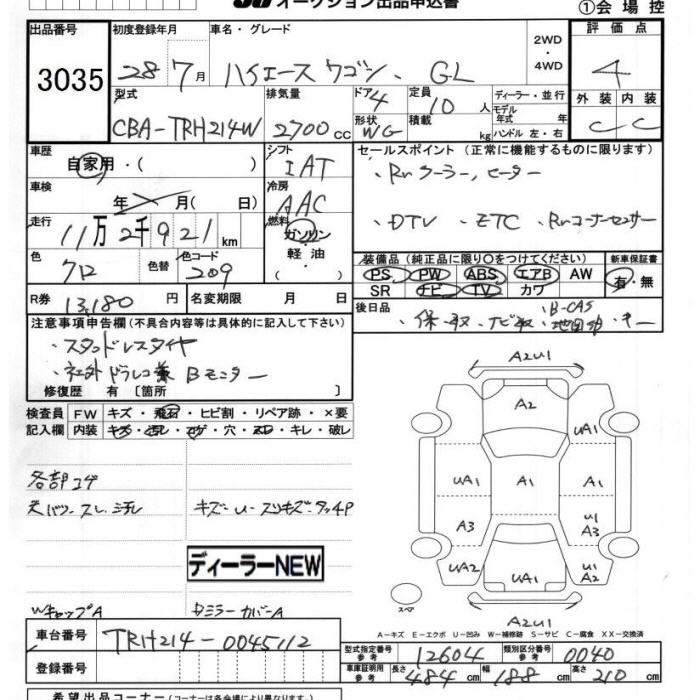 オークション出品申込書
①会場控
出品番号 初度登録年月 車名・グレード 評価点
3035 28年7月 ハイエースワゴン、GL 2WD・4WD 4
型式 排気量 ドア 4 定員 10人 ディーラー・並行 外装 内装
CBA-TRH214W 2700cc 形状 WG 積載 kg モデル年式 年式 ハンドル 左・右 C C
車歴 シフト セールスポイント (正常に機能するものに限ります)
自家用・( ) IAT ・Rrクーラー,ヒーター
車検 年 月( 日) 冷房 AAC
走行 11万2千921km 燃料 ガソリン・軽油・( ) ・DTV ・ETC ・Rrコーナーセンサー
色 クロ 色替 色コード 209 装備品 (純正品に限り○をつけてください) 新車保証書
PS PW ABS エアB AW 有・無
SR ナビ TV カワ
R券 13,180円 名変期限 月 日 後日品 ・保・取、ナビ取、B-CAS
注意事項申告欄(不具合内容等は具体的に記入して下さい)
・スタッドレスタイヤ
・社外ドラレコ兼Bモニター
修復歴 有 [箇所 ]
検査員 FW キズ・飛石・ヒビ割・リペア跡・×要
記入欄 内装 キズ・汚れ・コゲ・穴・スレ・キレ・破レ
各部コゲ
キズ-U-スリキズ-タッチP
ディーラーNEW
WキャップA
車台番号 TRH214-0045112
登録番号
A2U1
A2
UA1
UA1 A1 A1
A3 U1 A3
UA2 UA1 U1 A2
スペア
A2U1
A-キズ E-エクボ U-凹み W-補修跡 S-サビ C-腐食 XX-交換済
型式指定番号 参考 12604 類別区分番号 参考 0040
車庫証明用 参考 長さ 484cm 幅 188cm 高さ 210cm
希望出品コーナー